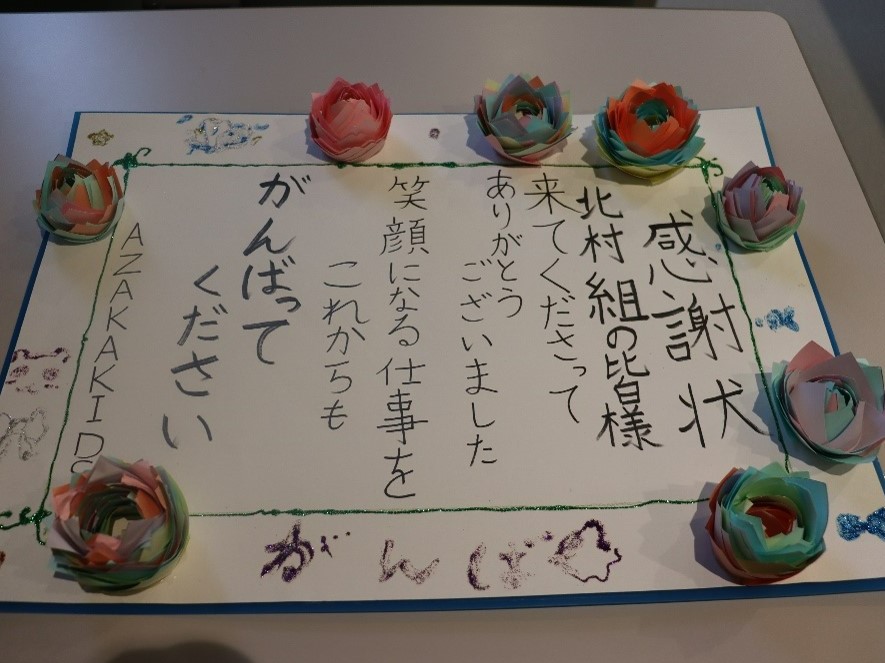 感謝状
北村組の皆様
来てくださって
ありがとう
ございました
笑顔になる仕事を
これからも
がんばって
ください
AZAKAKIDS
がんば